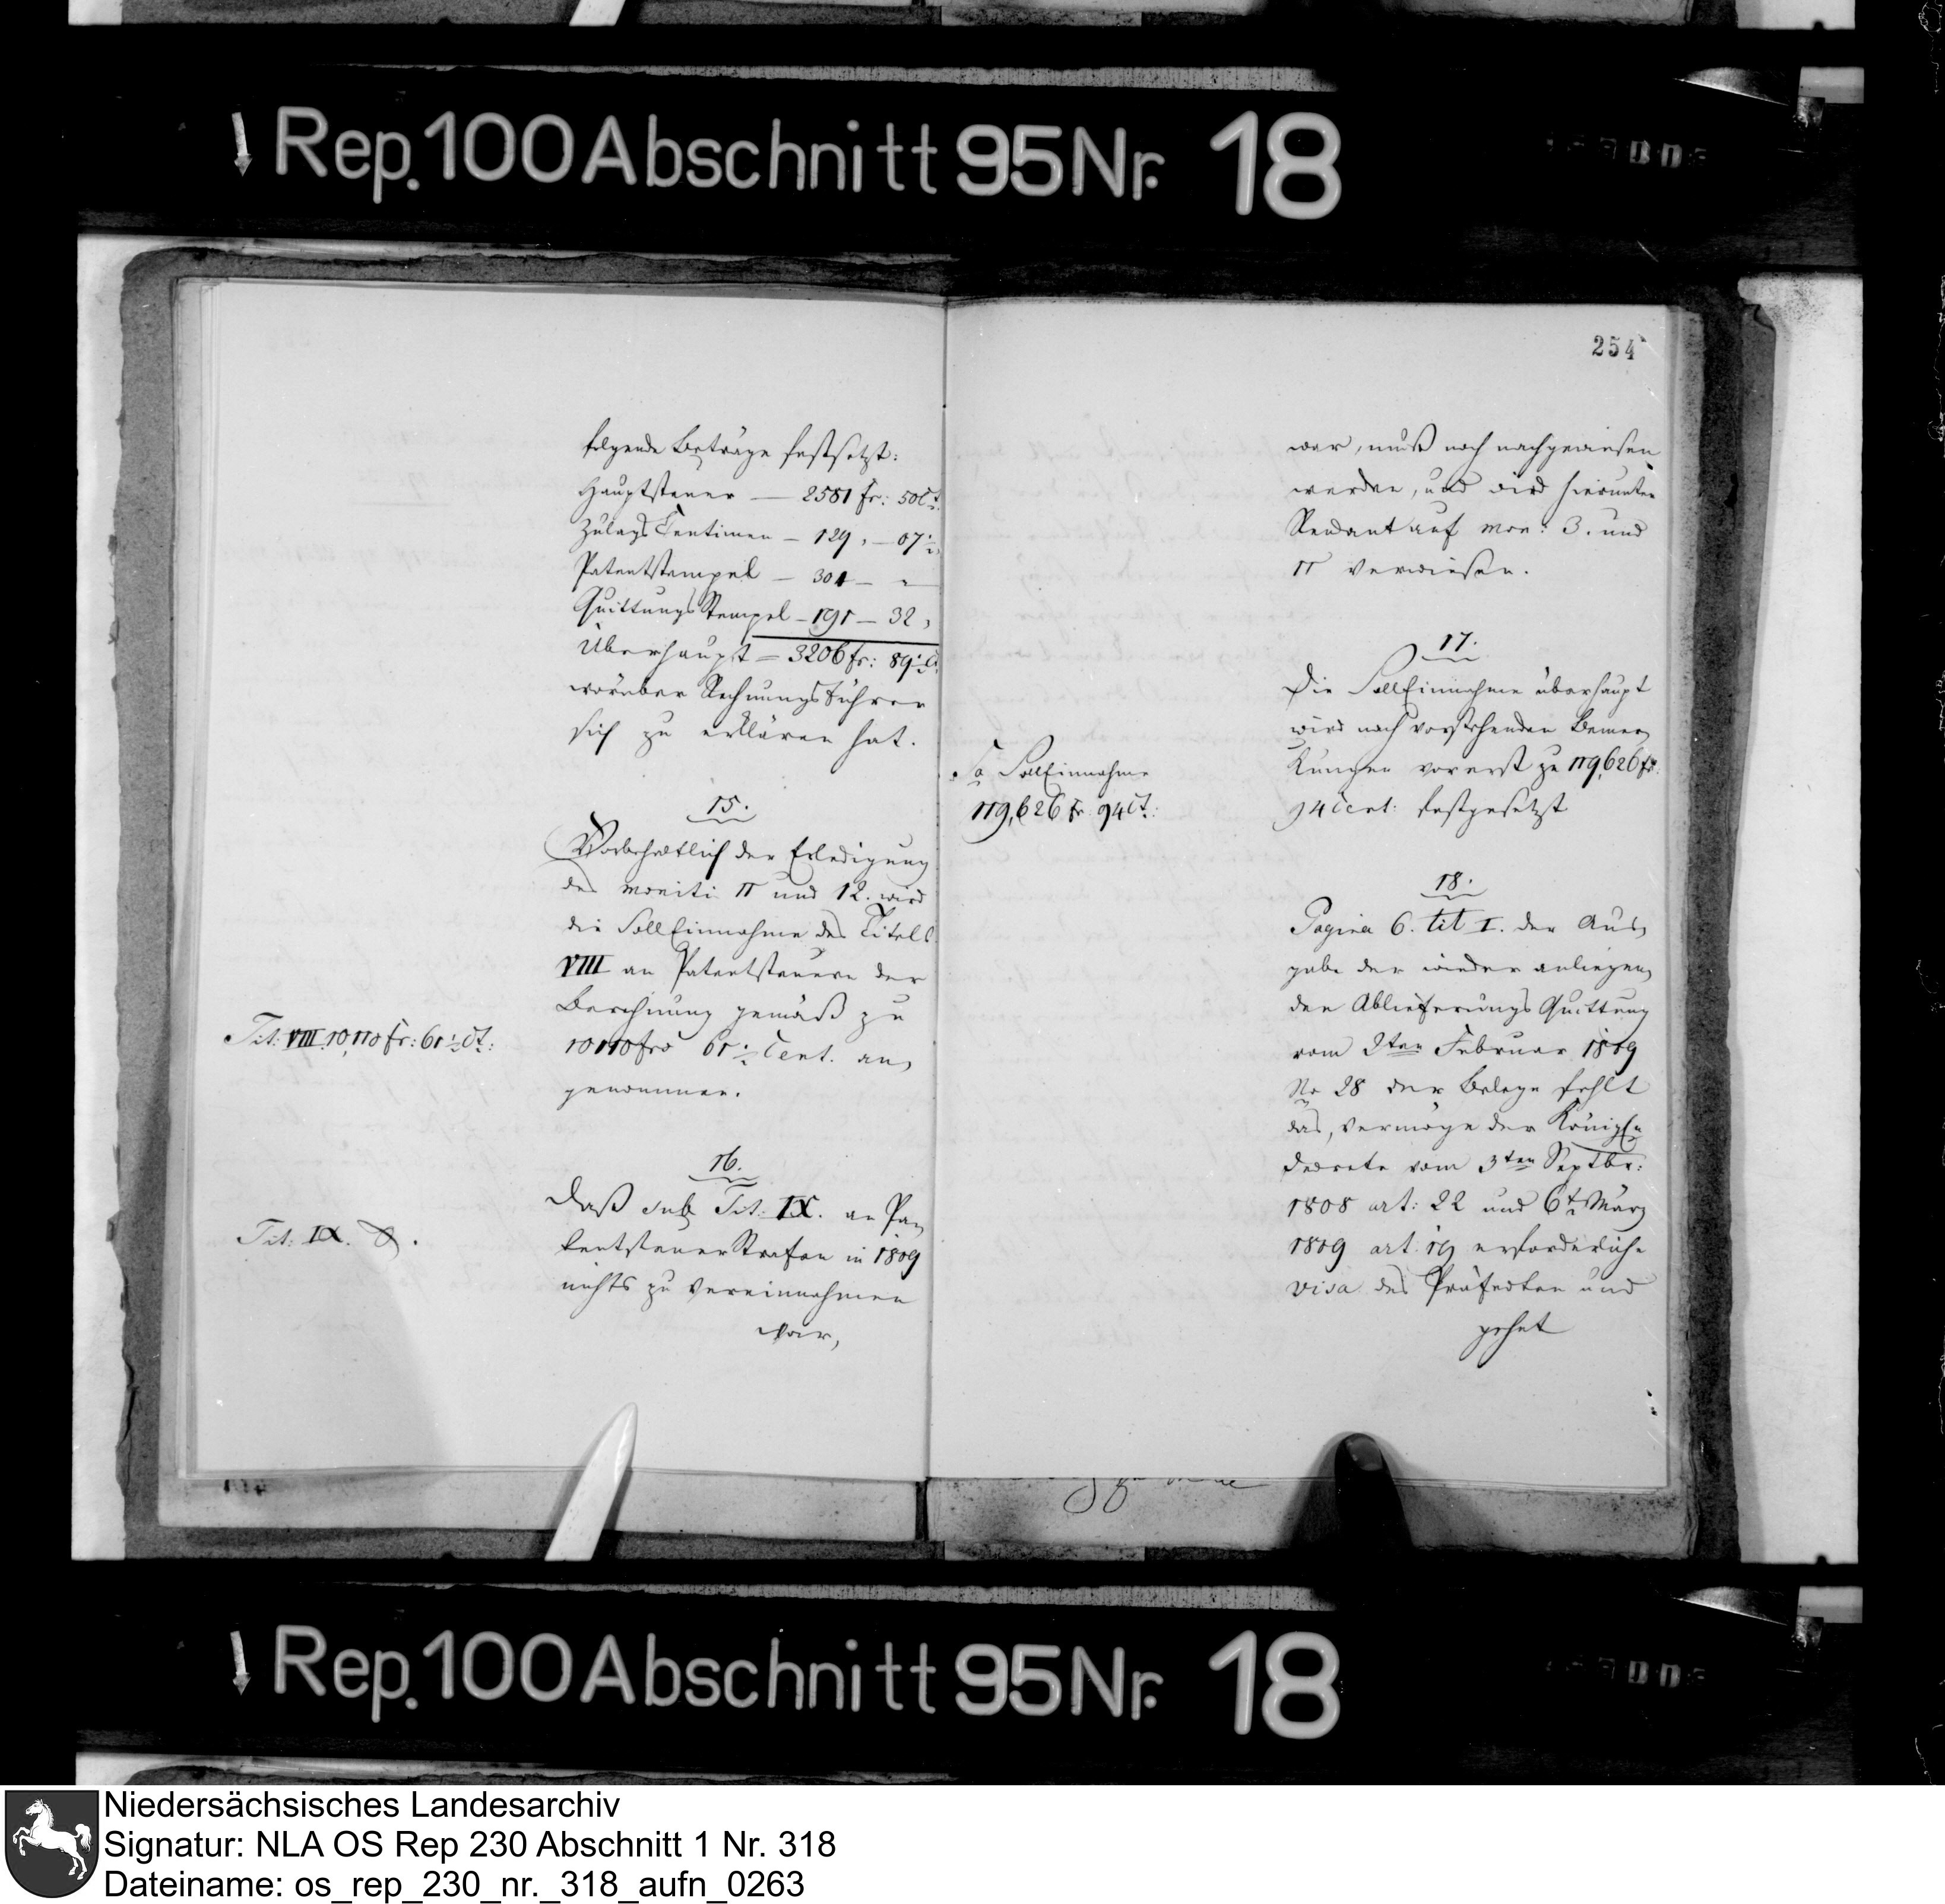 Rep. 100 Abschnitt 95 Nr. 18
folgende Beträge festsetzt:
Hauptsteuer — 2581 fr: 50 Ct.
Zulags Centimen — 129 " — 07½ "
Patentstempel — 304 — "
Quittungs Stempel — 191 — 32 "
Überhaupt = 3206 fr: 89½ Ct.
worüber Rechnungsführer
sich zu erklären hat.
15.
Vorbehaltlich der Erledigung
des moniti 11 und 12. wird
die SollEinnahme des Titels
VIII an Patentsteuern der
Berechnung gemäß zu
Tit: VIII 10,110 fr: 61½ Ct:
10110 frs 61½ Cent. an,
genommen.
16.
Daß sub Tit: IX. an Pa,
Tit: IX.
tentsteuer Strafen in 1809
nichts zu vereinnahmen
war,
254
war, muß noch nachgewiesen
werden, und wird hierunter
Rendant auf mon: 3. und
11 verwiesen.
17.
Die SollEinnahme überhaupt
wird nach vorstehenden Bemer,
Sa SollEinnahme
119,626 fr 94 Ct:
kungen vorerst zu 119,626 fr:
94 Cent: festgesetzt
18.
Pagina 6. tit I. der Aus,
gabe der wieder anliegen,
den Ablieferungs Quittung
vom 2ten Februar 1809
No 28 der Belege fehlt
das, vermöge der Königln
Decrete vom 3ten Septbr:
1808 art: 22 und 6t März
1809 art: 19 erforderliche
visa des Präfecten und
gehet
Rep. 100 Abschnitt 95 Nr. 18
Niedersächsisches Landesarchiv
Signatur: NLA OS Rep 230 Abschnitt 1 Nr. 318
Dateiname: os_rep_230_nr._318_aufn_0263